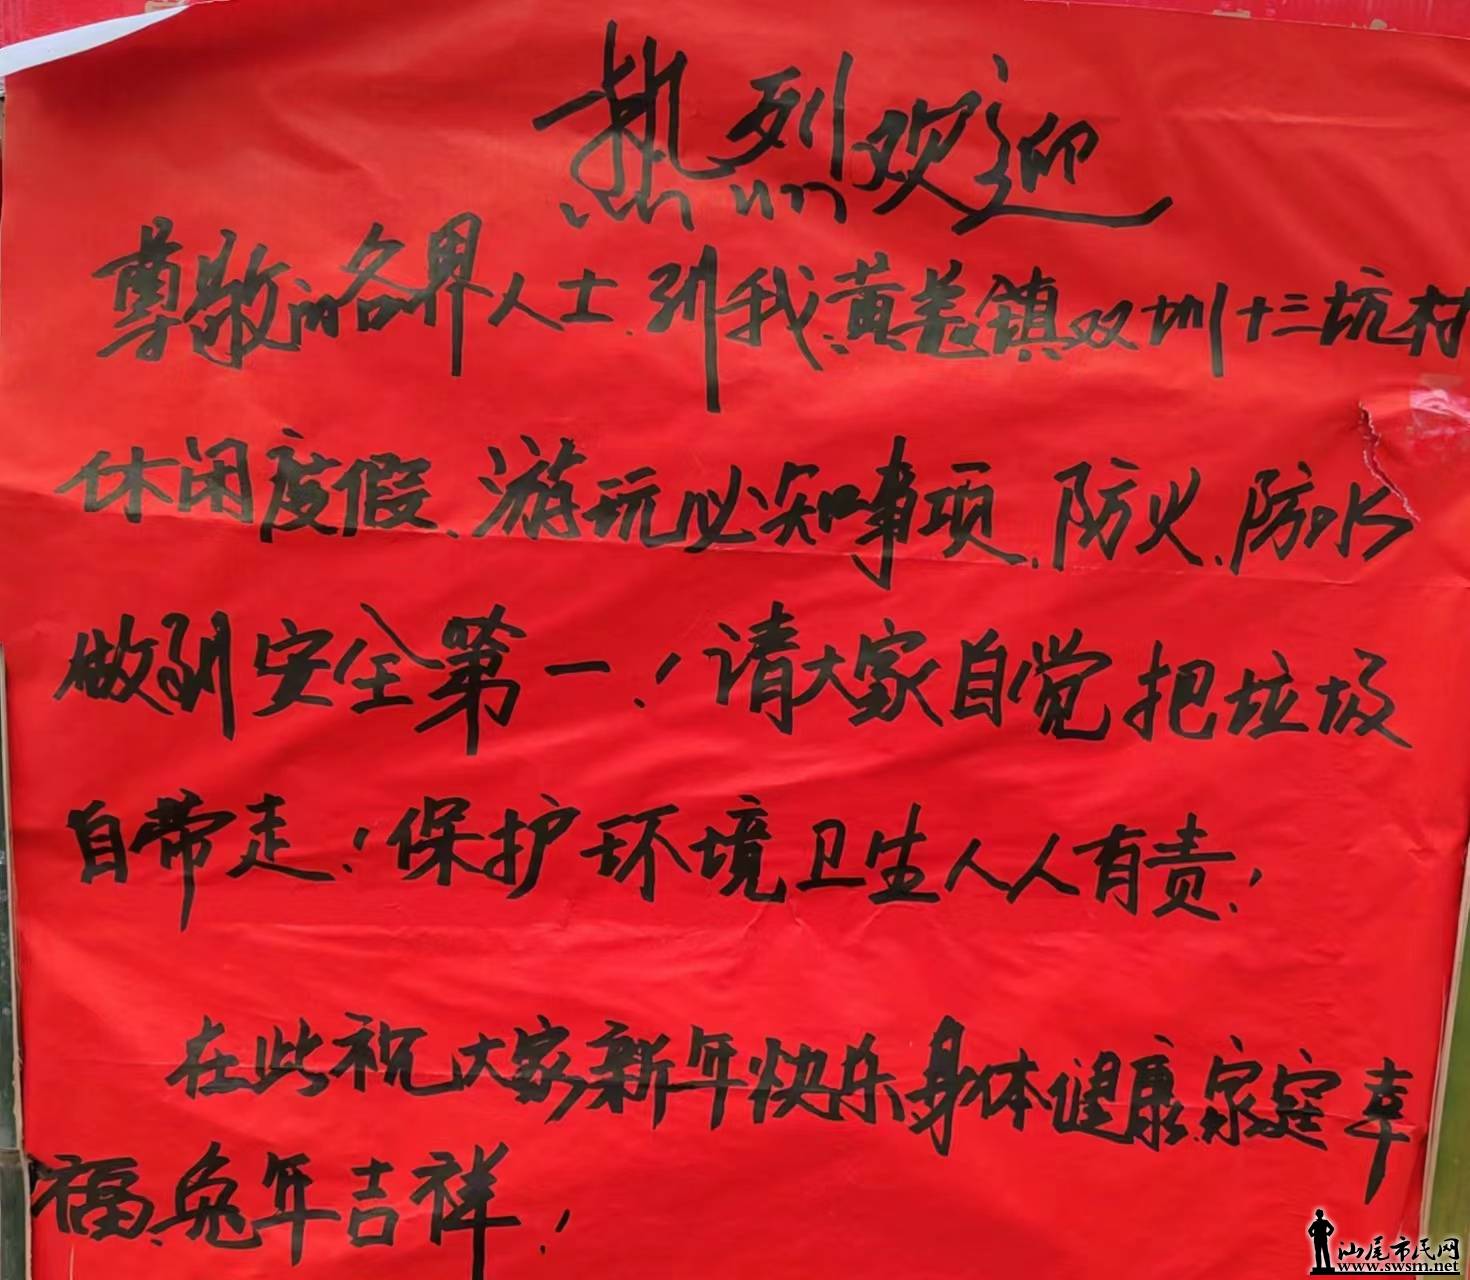 热烈欢迎
尊敬的各界人士.到我黄羌镇双圳十三坑村
休闲度假、游玩必知事项、防火、防水
做到安全第一！请大家自觉把垃圾
自带走！保护环境卫生人人有责！
在此祝大家新年快乐身体健康.家庭幸
福、兔年吉祥！
汕尾市民网
www.swsm.net